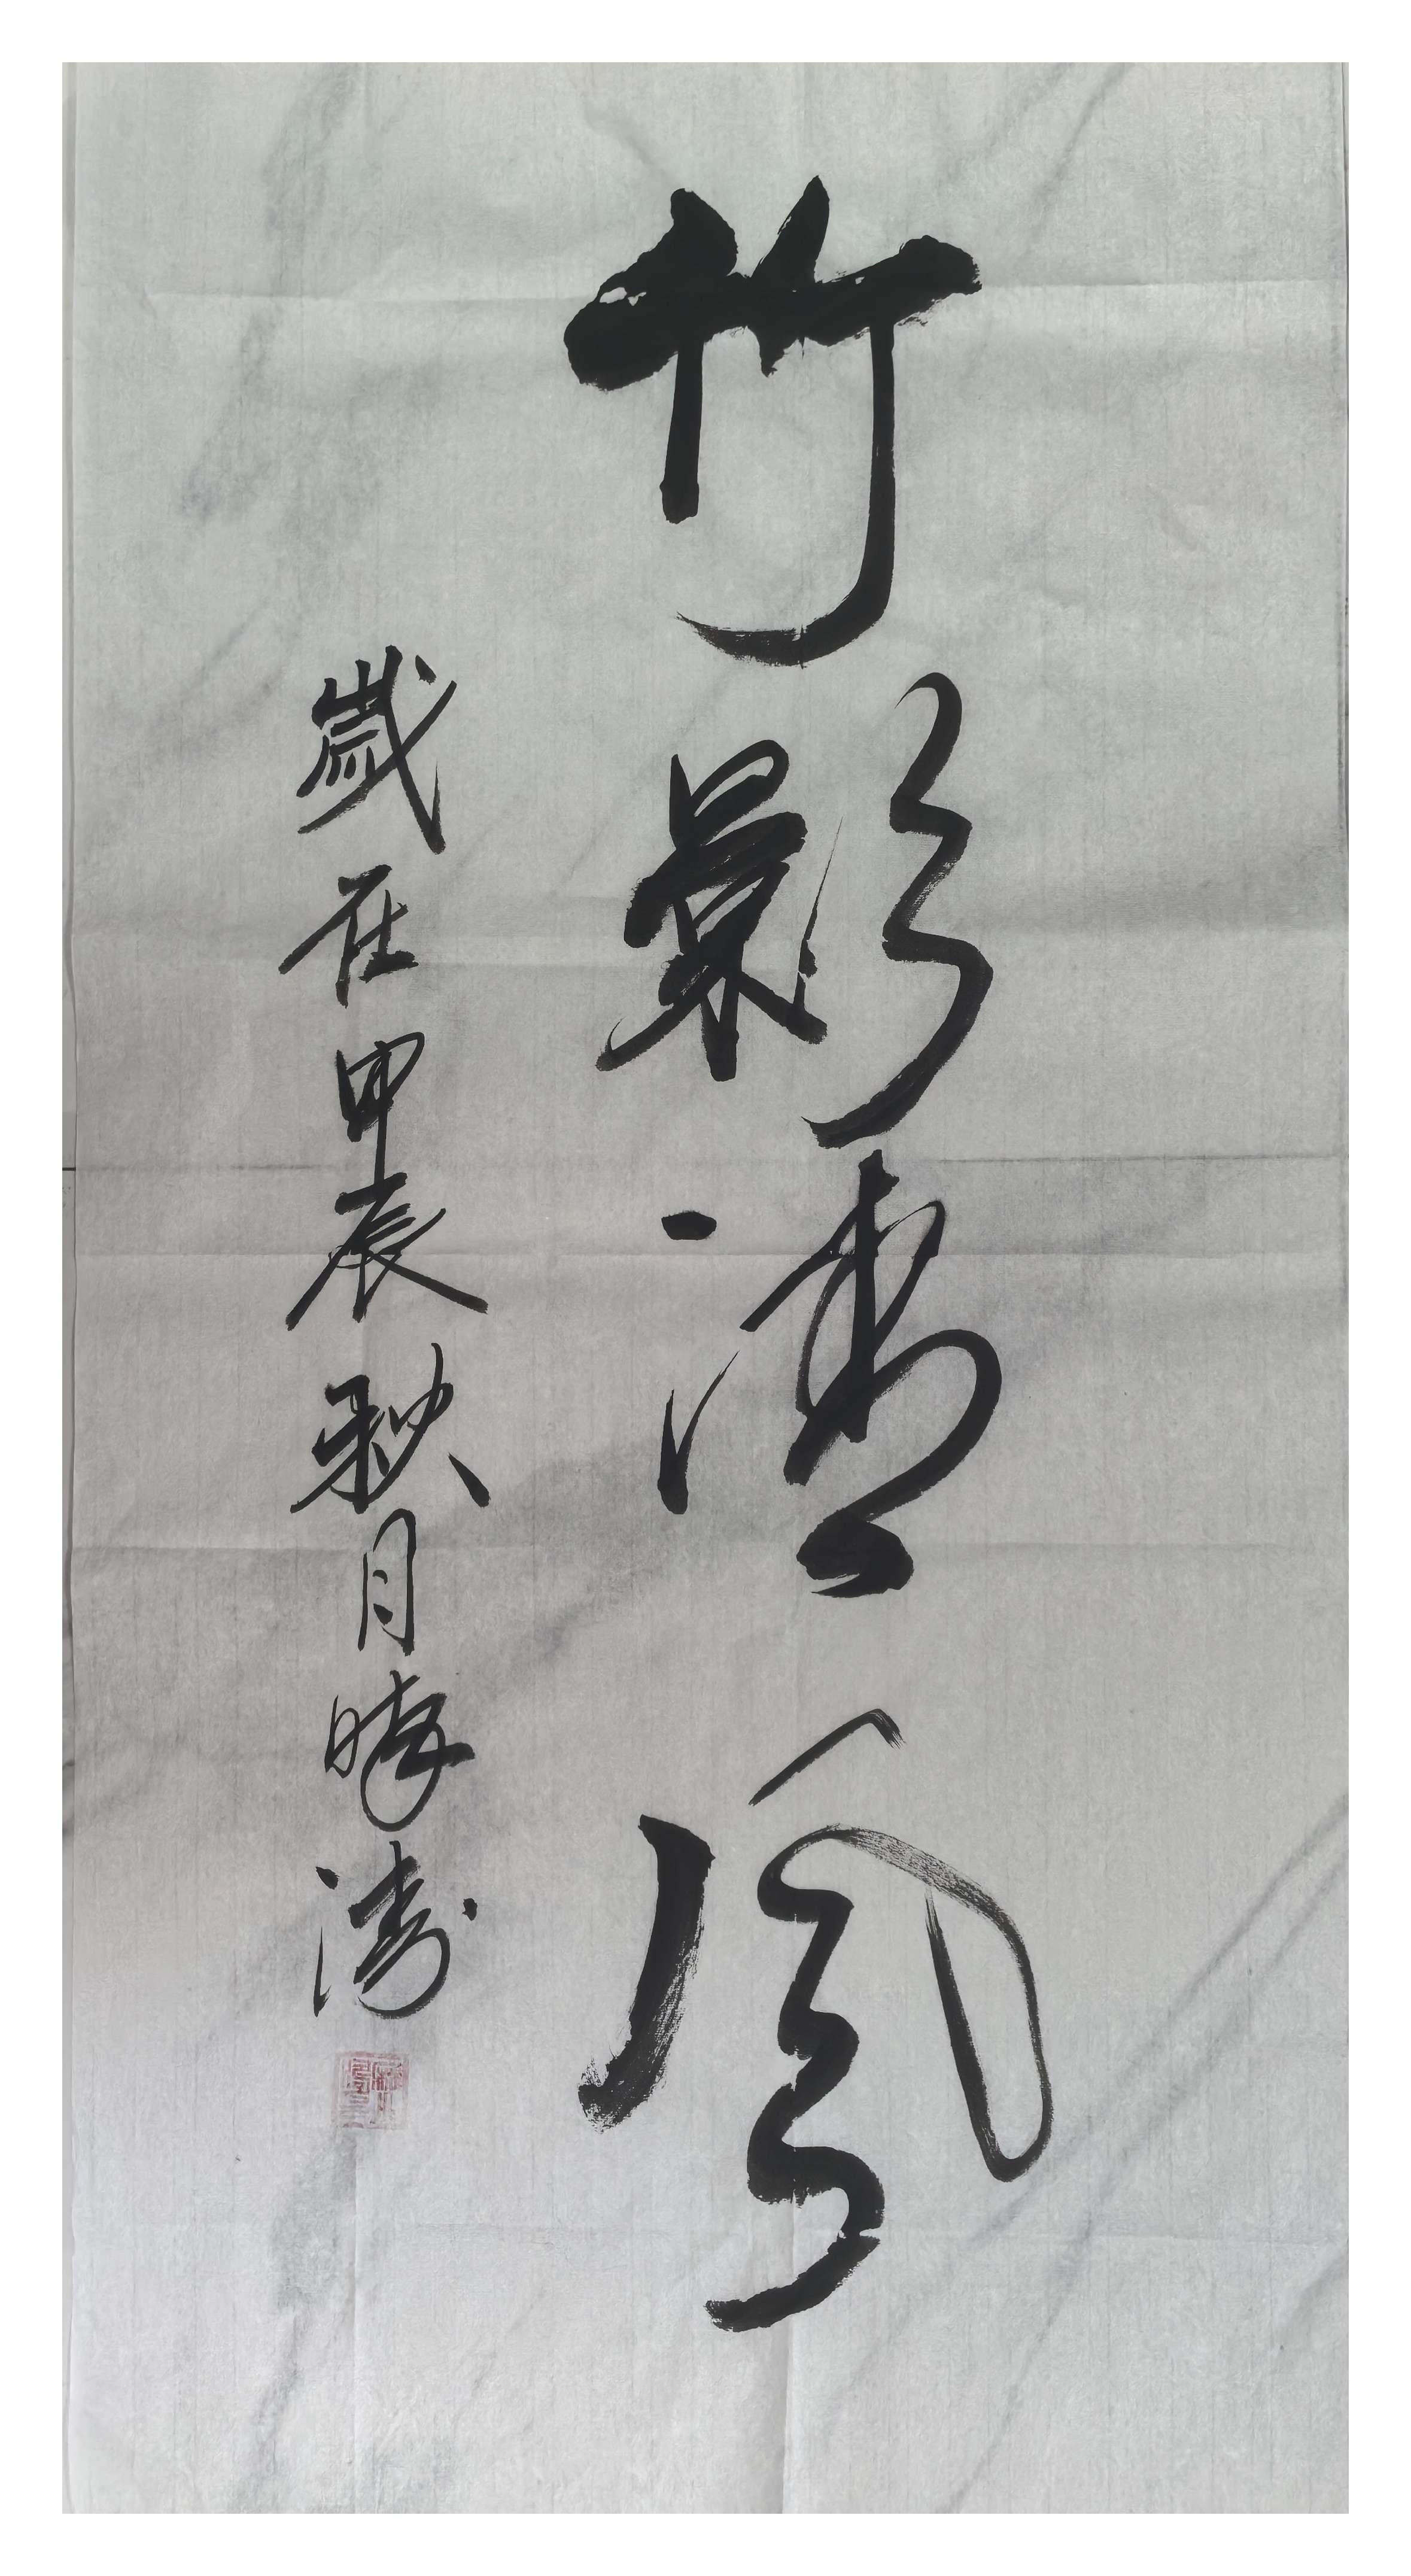 竹影清風
歲在甲辰秋月濤